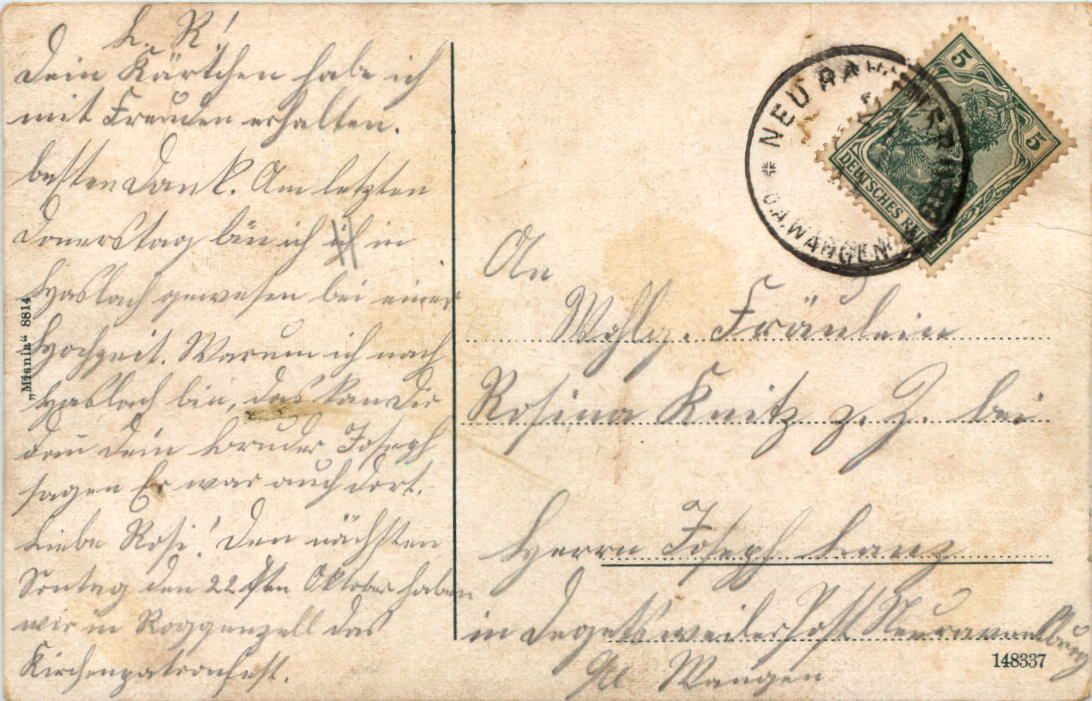 L. R!
Dein Kärtchen habe ich
mit Freuden erhalten.
besten Dank. Am letzten
Donerstag bin ich in
Haslach gewesen bei einer
Hochzeit. Warum ich nach
Haslach bin, das kan Dir
dan dein bruder Joseph
sagen Er war auch dort.
Liebe Rosi! Den nächsten
Sontag den 22sten Oktober haben
wir in Roggenzell das
Kirchenpatronfest.
„Misnia“ 8814
NEURAVENSBURG
O.A.WANGEN
5
5
DEUTSCHES REICH
An
Wohlg. Fräulein
Rosina Knitz z. Z. bei
Herrn Joseph Lanz
in Degetsweiler Post Neuravensburg
Wangen
148337